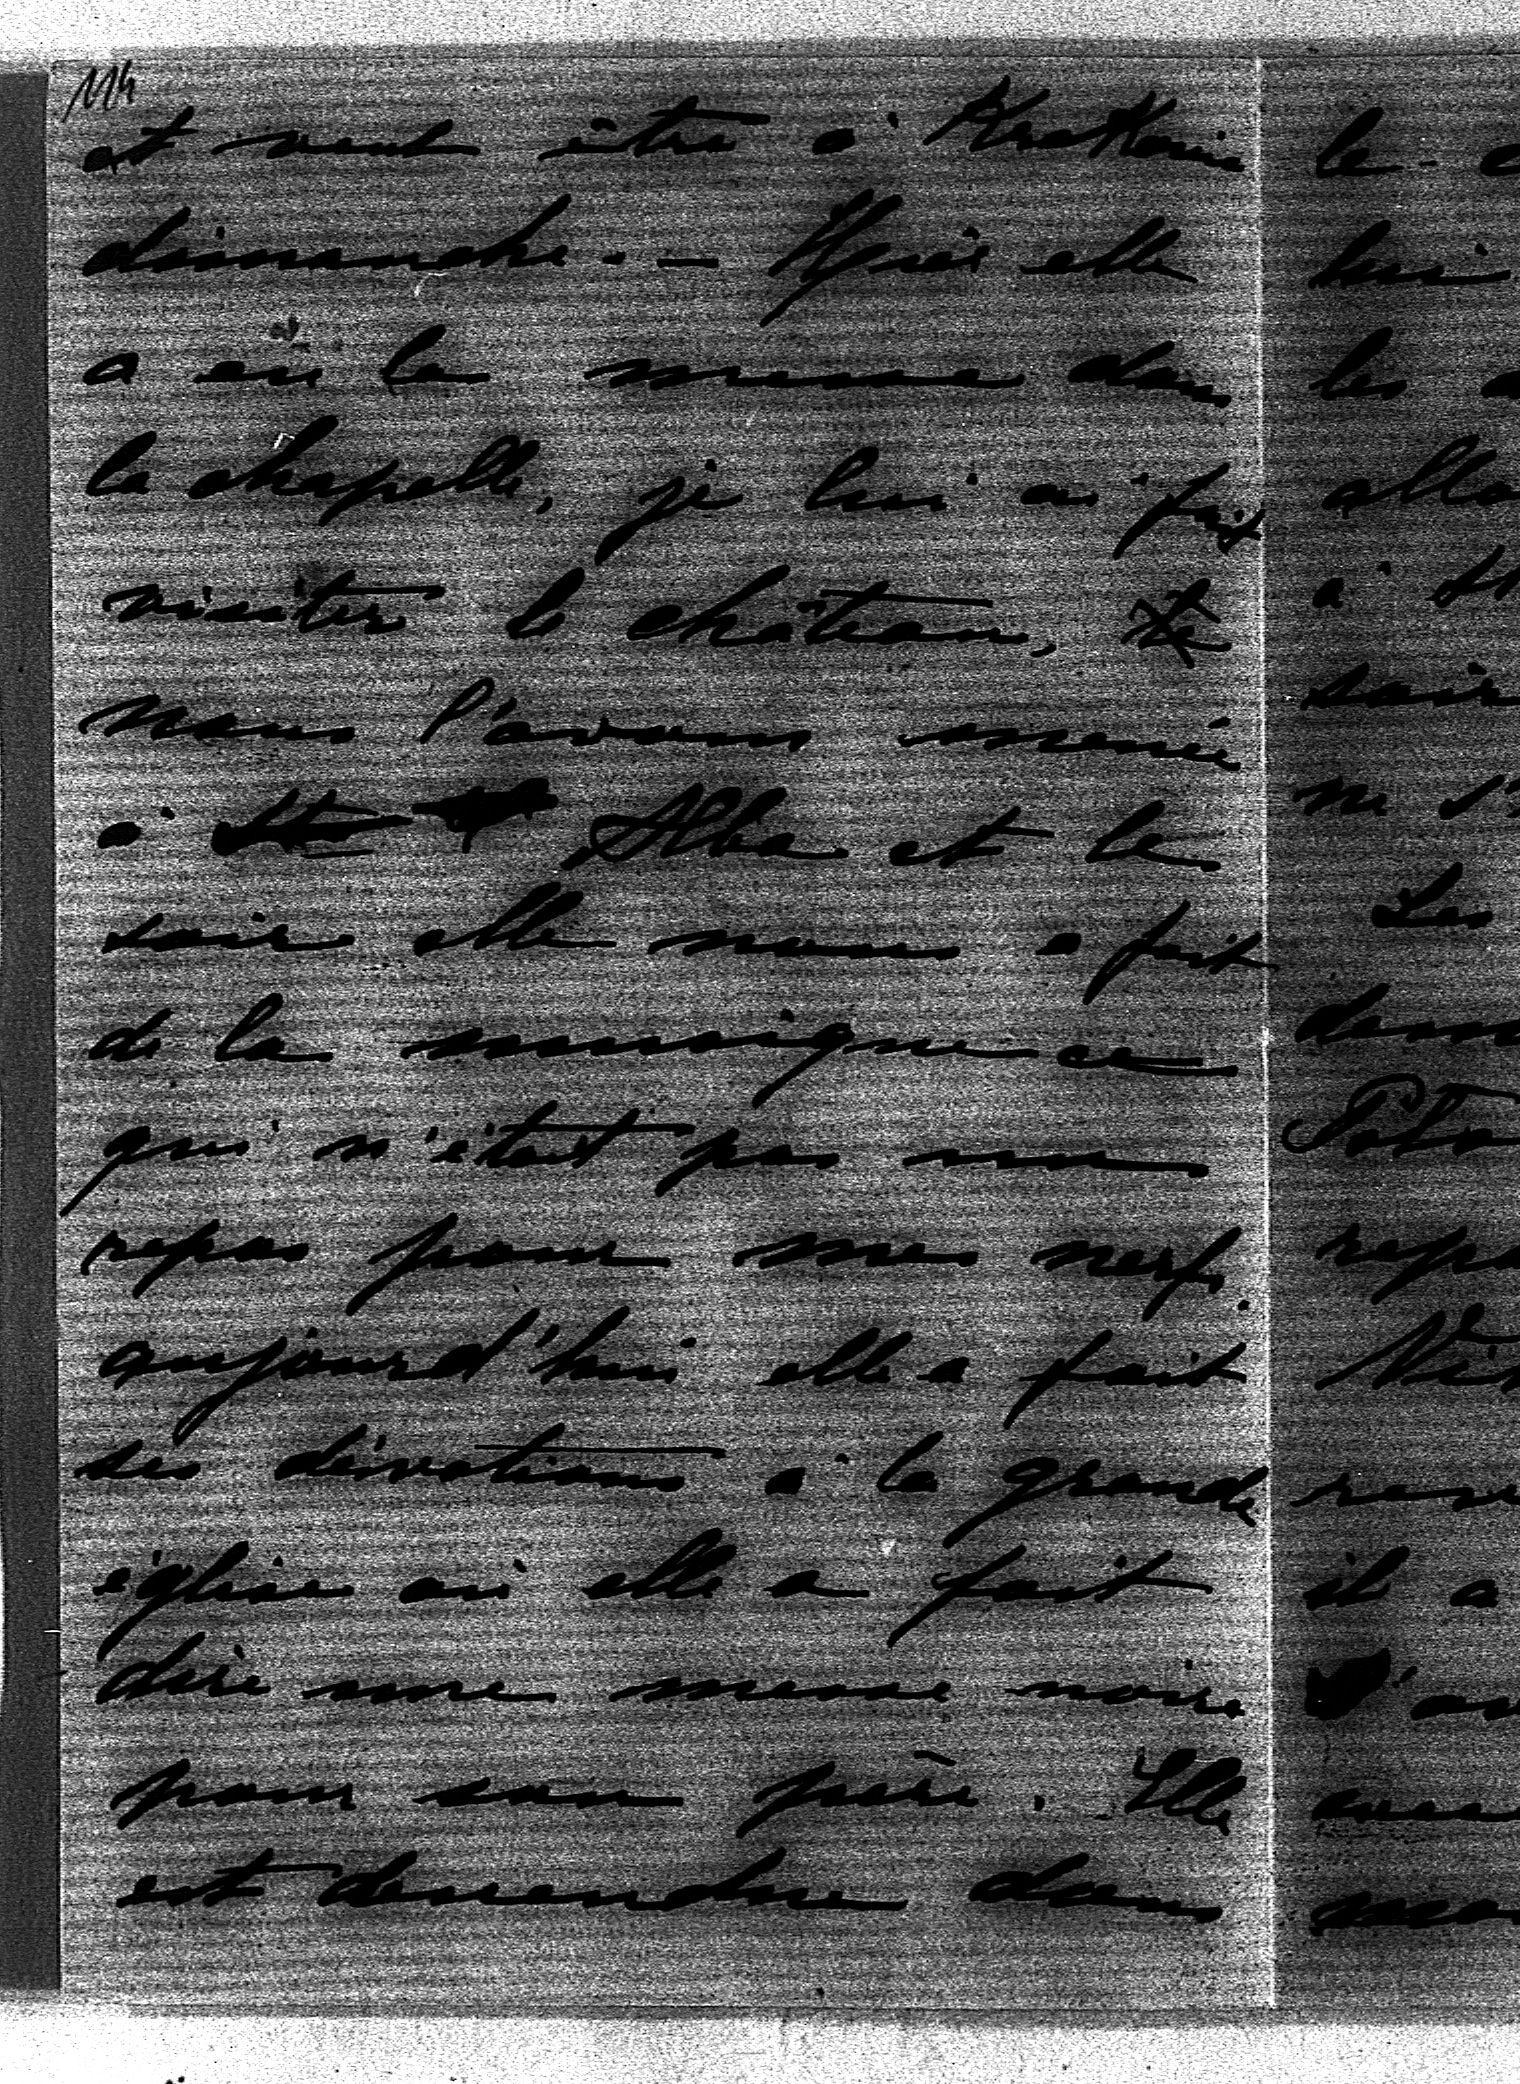 114
et veut être à Krakovie
dimanche. — Hyier elle
a eu la messe dans
la chapelle, je lui ai fait
visiter le château,
nous l'avons menée
à Alba et le
soir elle nous a fait
de la musique ce
qui n'était pas un
repos pour mes nerfs.
aujourd'hui elle a fait
ses dévotions à la grande
église où elle a fait
dire une messe noire
pour son père. Elle
est descendue dans
le
lui
les
allo
à
soir
ne s'
Les
dem
Poto
rep
il a
avec